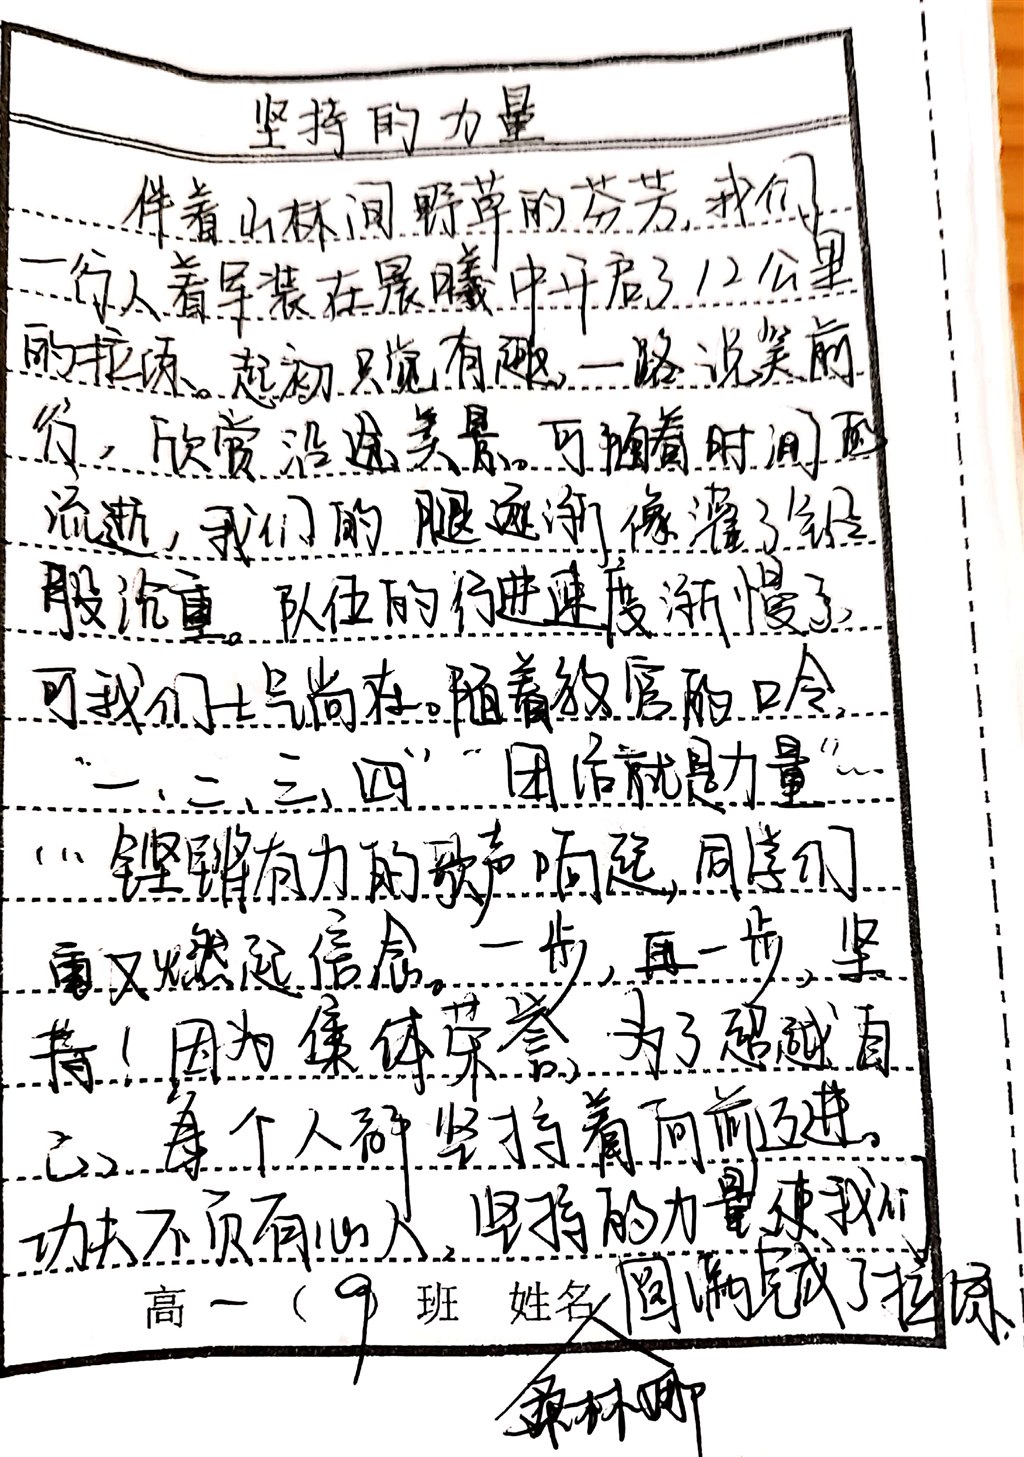 坚持的力量
伴着山林间野草的芬芳，我们
一行人着军装在晨曦中开启了12公里
的拉练。起初只觉有趣，一路说笑前
行，欣赏沿途美景。可随着时间的
流逝，我们的腿逐渐像灌了铅
般沉重。队伍的行进速度渐慢了，
可我们士气尚在。随着教官的口令，
“一、二、三、四”“团结就是力量”…
…铿锵有力的歌声响起，同学们
重又燃起信念。一步，再一步，坚
持！因为集体荣誉，为了超越自
己，每个人都坚持着向前迈进。
功夫不负有心人，坚持的力量使我们
圆满完成了拉练。
高一（9）班 姓名
林娜